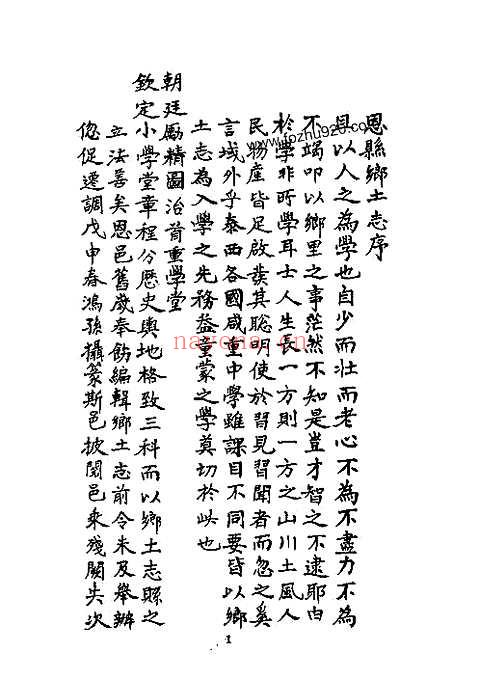 恩縣鄉土志序
且以人之為學也自少而壯而老心不為不盡力不為
不竭叩以鄉里之事茫然不知是豈才智之不逮耶由
於學非所學耳士人生長一方則一方之山川土風人
民物產皆足啟發其聰明使於習見習聞者而忽之奚
言域外乎泰西各國咸重中學雖課目不同要皆以鄉
土志為入學之先務益童蒙之學莫切於此也
朝廷勵精圖治首重學堂
欽定小學堂章程分歷史輿地格致三科而以鄉土志縣之
立法善矣恩邑舊歲奉飭編輯鄉土志前令未及舉辦
倥促遷調戊申春鴻孫攝篆斯邑披閱邑乘殘闕失次
1
www.fozhu920.com
nayona.cn